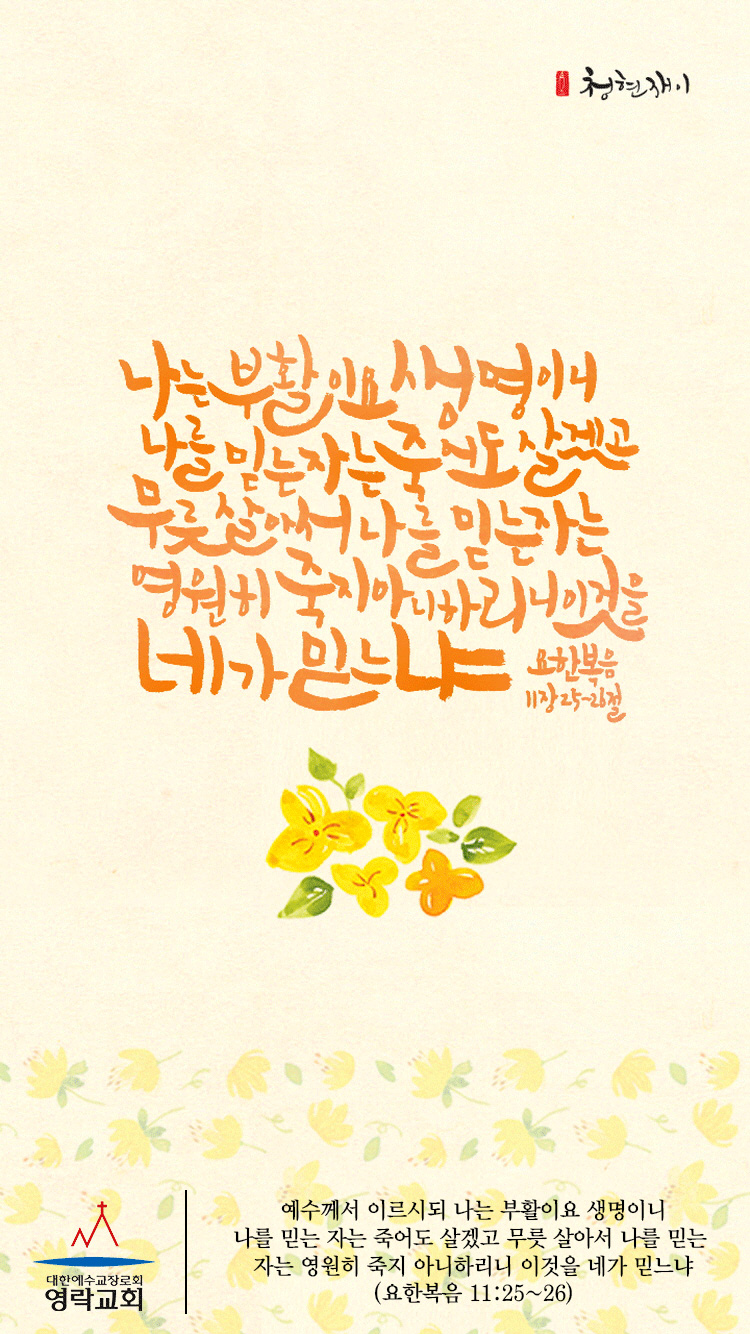 청현재이
나는 부활이요 생명이니
나를 믿는 자는 죽어도 살겠고
무릇 살아서 나를 믿는 자는
영원히 죽지 아니하리니 이것을
네가 믿느냐
요한복음
11장 25~26절
대한예수교장로회
영락교회
예수께서 이르시되 나는 부활이요 생명이니
나를 믿는 자는 죽어도 살겠고 무릇 살아서 나를 믿는
자는 영원히 죽지 아니하리니 이것을 네가 믿느냐
(요한복음 11:25~26)